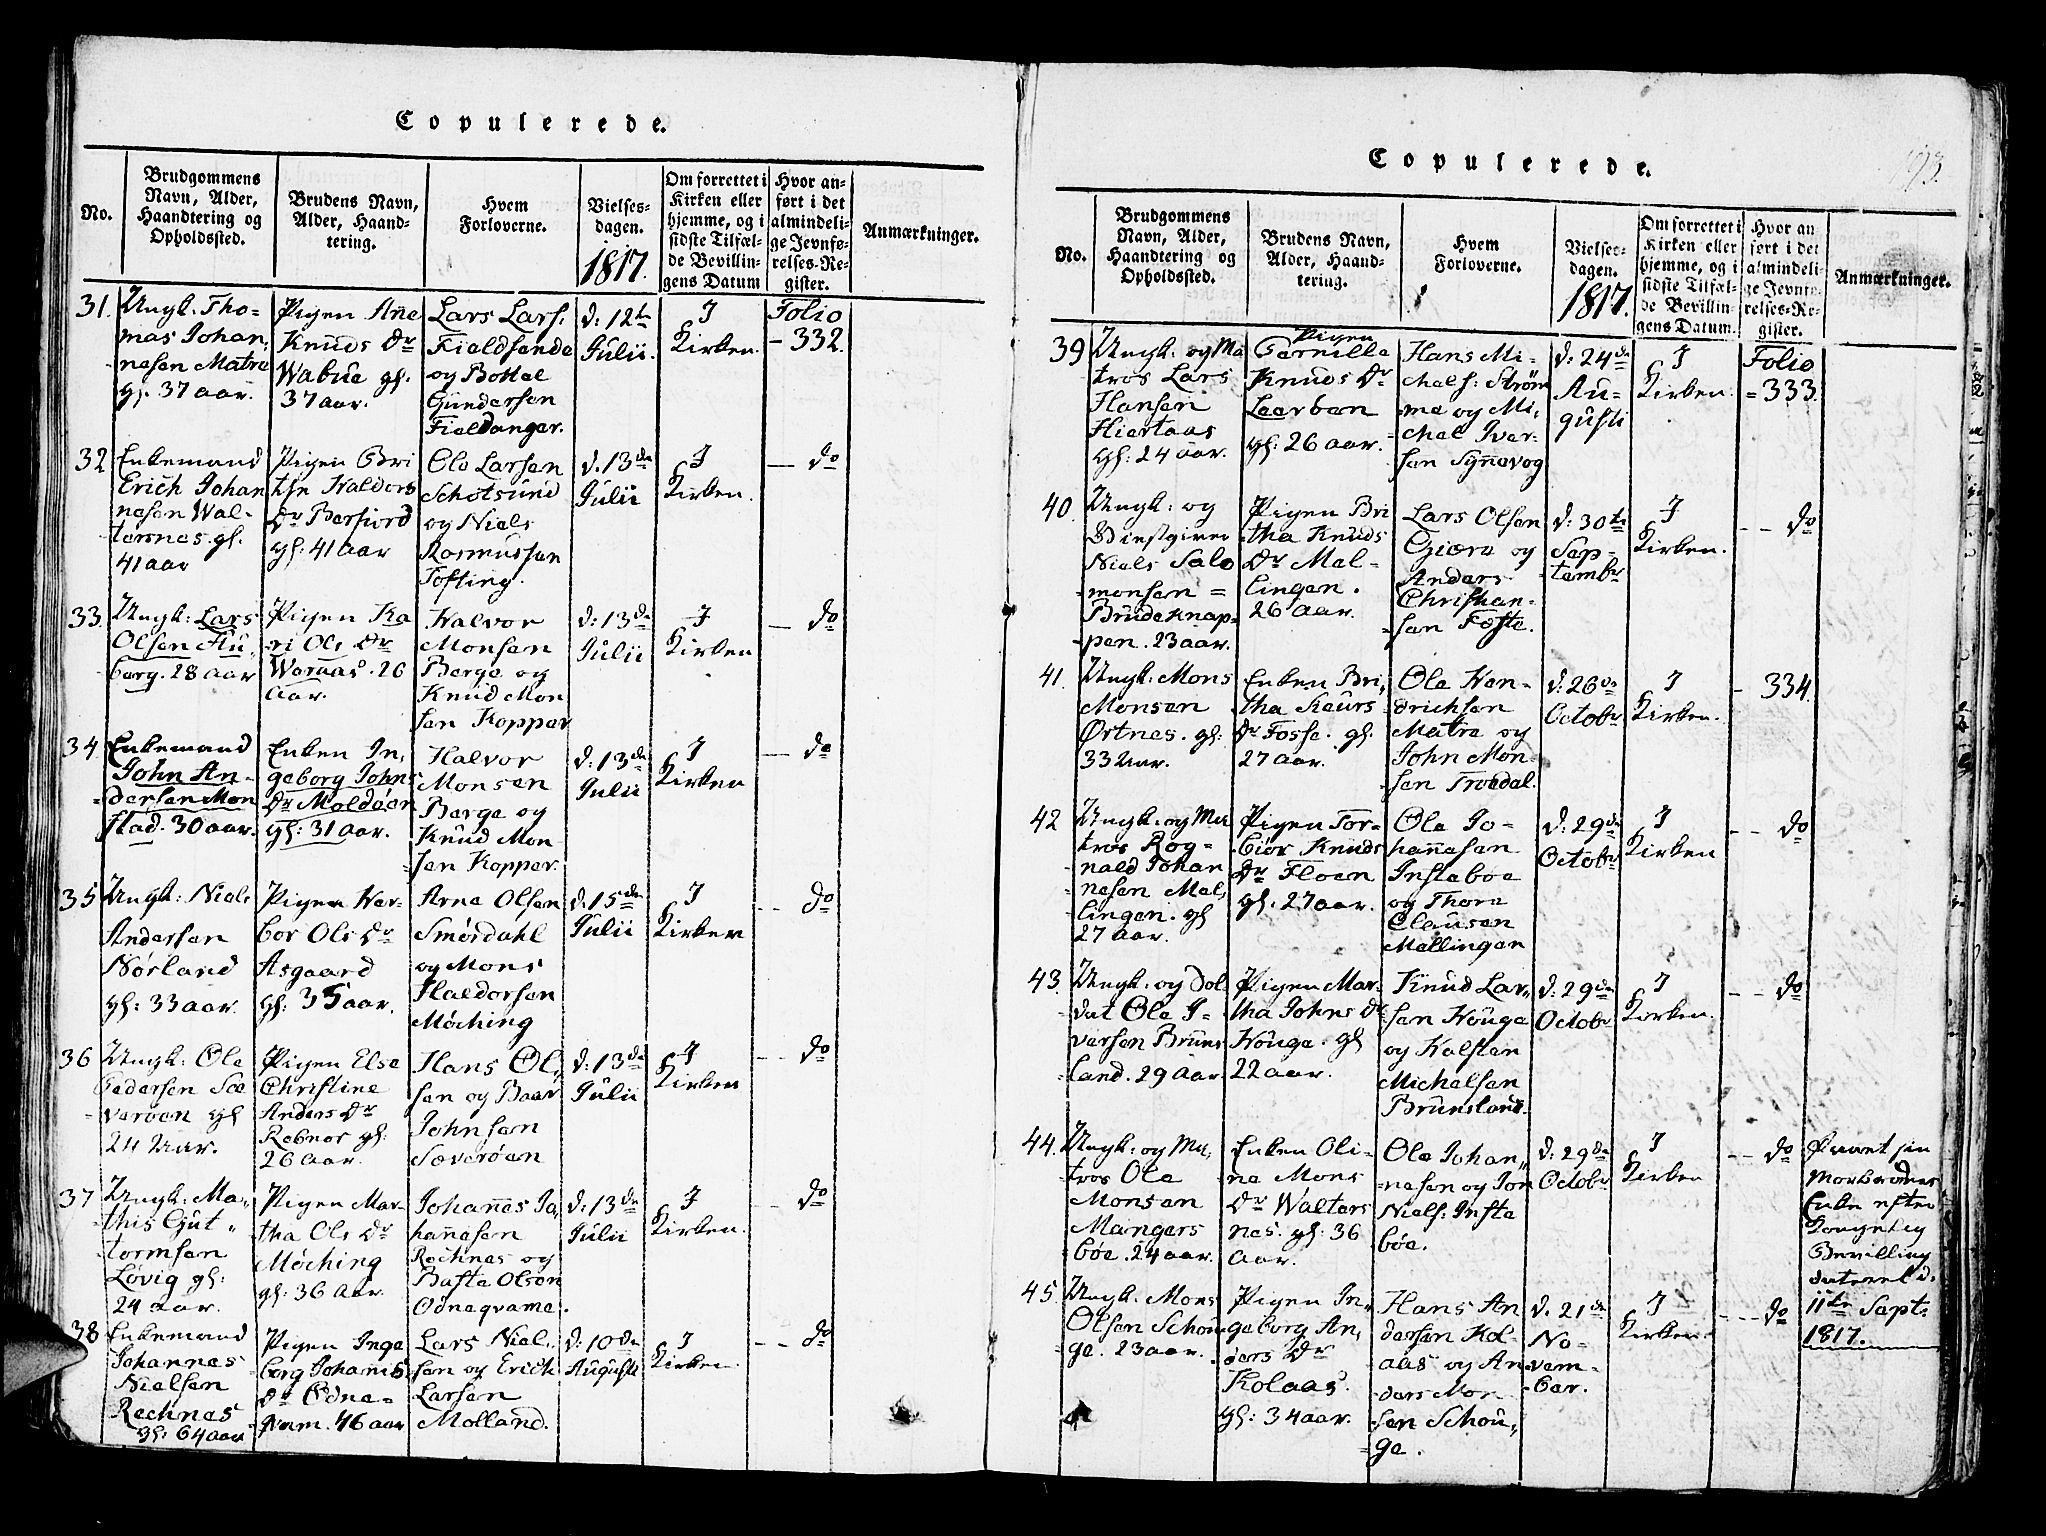 Copulerede.
No.
Brudgommens
Navn, Alder,
Haandtering og
Opholdssted.
Brudens Navn,
Alder, Haand-
tering.
Hvem
Forloverne.
Vielses-
dagen.
1817.
Om forrettet i
Kirken eller
hjemme, og i
sidste Tilfæl-
de Bevillin-
gens Datum
Hvor an-
ført i det
almindeli-
ge Jevnfø-
relses-Re-
gister.
Anmærkninger.
31.
Ungk: Tho-
mas Johan,
nesen Matre
gl. 37 aar.
Pigen Añe
Knuds Dr
Wabue gl:
37 aar.
Lars Lars:
Fieldsende
og Bottel
Gundersen
Fieldanger.
d: 12te
Julii.
I
Kirken.
Folio
- 332.
32
Enkemand
Erich Johan
nesen Wal-
tersnes gl.
41 aar
Pigen Bri
the Haldors
Dr Berfiord
gl: 41 aar
Ole Larsen
Schotsund
og Niels
Rasmussen
Tofting.
d. 13de
Julii
I
Kirken.
— do
33.
Ungk: Lars
Olsen Hu,
berg. 28 aar
Pigen Ka
ri Ols Dr
Wernaas. 26
aar.
Halvor
Monsen
Berge og
Knud Mon
sen Kopper
d: 13de
Julii
I
Kirken
— do
34
Enkemand
John An-
dersen Mon
stad. 30 aar.
Enken In,
geborg Johns
Dr Moldøen
gl: 31 aar.
Halvor
Monsen
Berge og
Knud Mon
sen Kopper.
d: 13de
Julii
I
Kirken
— do
35
Ungk: Niels
Andersen
Nörland
gl: 33 aar.
Pigen Her-
bor Ols Dr
Asgaard
gl: 35 aar.
Arne Olsen
Smørdahl
og Mons
Haldorsen
Møching
d. 15de
Julii
I
Kirken
— do
36
Ungk: Ole
Pedersen Sæ
verøen gl
24 Aar.
Pigen Else
Christine
Anders Dr
Rebnor gl:
26 aar.
Hans Ol,
sen og Baar
Johnsen
Sæverøen
d: 13de
Julii
I
Kirken
— do
37
Ungk: Ma-
this Gut,
tormsen
Løvig gl:
24 aar.
Pigen Mar-
tha Ols Dr
Møching
gl: 36 aar.
Johañes Jo,
hañesen
Rechnes og
Baste Olsen
Odneqvame.
d: 13de
Julii
I
Kirken.
— do
38
Enkemand
Johannes
Nielsen
Rechnes
gl: 64 aar
Pigen Inge
borg Johañis
Dr Odne-
qvam. 46 aar
Lars Niel,
sen og Erich
Larsen
Molland.
d: 10de
Augusti
I
Kirken.
— do
Copulerede.
193.
No.
Brudgommens
Navn, Alder,
Haandtering og
Opholdssted.
Brudens Navn,
Alder, Haand-
tering.
Hvem
Forloverne.
Vielses-
dagen.
1817.
Om forrettet i
Kirken eller
hjemme, og i
sidste Tilfæl-
de Bevillin-
gens Datum.
Hvor an
ført i det
almindeli-
ge Jevnfø-
relses-Re-
gister.
Anmærkninger.
39
Ungk. og Ma
tros Lars
Hansen
Hiertaas
gl: 24 aar.
Pigen
Pernille
Knuds Dr
Leerben
gl: 26 aar.
Hans Mi-
chels: Strøm
me og Mi,
chel Iver-
sen Sÿñevog
d: 24de
Au-
gusti
I
Kirken.
Folio
- 333.
40.
Ungk: og
Niels Salo
monsen
Brudeknap-
pen. 23 aar.
Pigen Bri
tha Knuds
Dr Mel-
lingen.
26 aar.
Lars Olsen
Giære og
Anders
Christian-
sen Feste.
d: 30te
Sep-
tembr
I
Kirken.
— do
41.
Ungk: Mons
Monsen
Ørtnes. gl:
33 Aar.
Enken Bri,
tha Siurs
Dr Fosse. gl.
27 aar.
Ole Hen-
drichsen
Matre og
John Mon-
sen Troedal.
d: 26de
Octobr
I
Kirken.
- 334.
42
Ungk. og Ma
tros Rog-
nald Johan
nesen Mel,
lingen. gl
27 aar.
Pigen Tor-
biør Knuds
Dr Floen
gl: 27 aar.
Ole Jo-
hañesen
Insteboe
og Thore
Clausen
Mellingen
d: 29de
Octobr
I
Kirken
— do
43.
Ungk. og Sol
dat Ole I-
versen Bruns
land. 29 Aar
Pigen Mar-
tha Johns Dr
Houge. gl
22 aar.
Knud Lar-
sen Houge
og Halsten
Michelsen
Brunsland.
d: 29de
Octobr
I
Kirken.
— do
44.
Ungk: og Ma,
tros Ole
Monsen
Mangers
böe. 24 aar.
Enken Oli-
ne Mons
Dr Walters
nes. gl: 36
aar.
Ole Johan,
nesen og Jon
Niels: Inste
böe.
d: 29de
Octobr
I
Kirken
— do
sin
Morbroders
Enke efter
Kongelig
Bevilling
dateret d.
11te Sept:
1817.
45.
Ungk. Mons
Olsen Schou
ge. 23 aar.
Pigen In,
geborg An,
ders Dr
Kolaas.
gl: 34 aar.
Hans An
dersen Kol-
aas og An
ders Mor-
sen Schou,
ge.
d. 21de
No-
vem-
ber.
I
Kirken.
— do